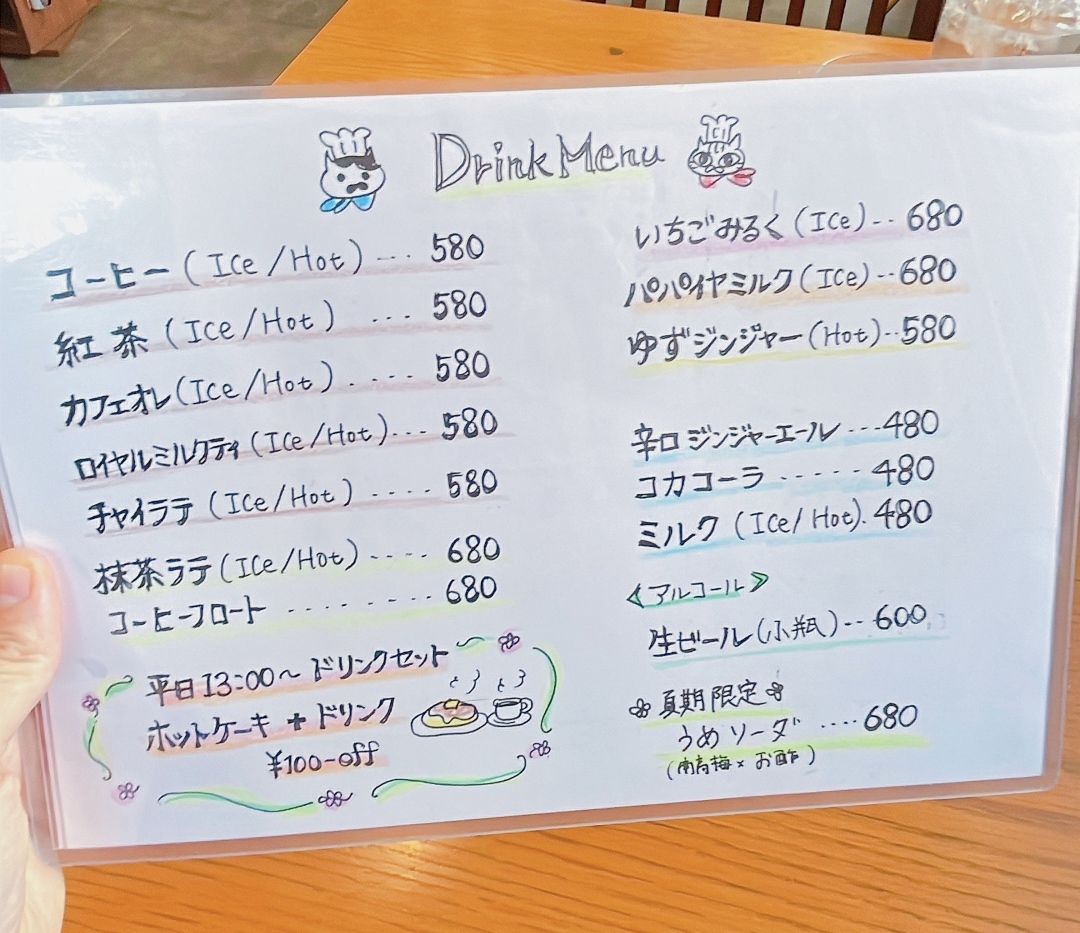 Drink Menu
コーヒー(Ice/Hot)... 580
紅茶(Ice/Hot) ... 580
カフェオレ(Ice/Hot).... 580
ロイヤルミルクティ(Ice/Hot)... 580
チャイラテ(Ice/Hot).... 580
抹茶ラテ(Ice/Hot).... 680
コーヒーフロート ........ 680
平日13:00〜ドリンクセット
ホットケーキ + ドリンク
¥100-off
いちごみるく(Ice)..680
パパイヤミルク(Ice)..680
ゆずジンジャー(Hot)..580
辛口ジンジャーエール...480
コカコーラ ......480
ミルク(Ice/Hot).480
《アルコール》
生ビール(小瓶)..600
夏期限定
うめソーダ ....680
(南高梅×お酢)